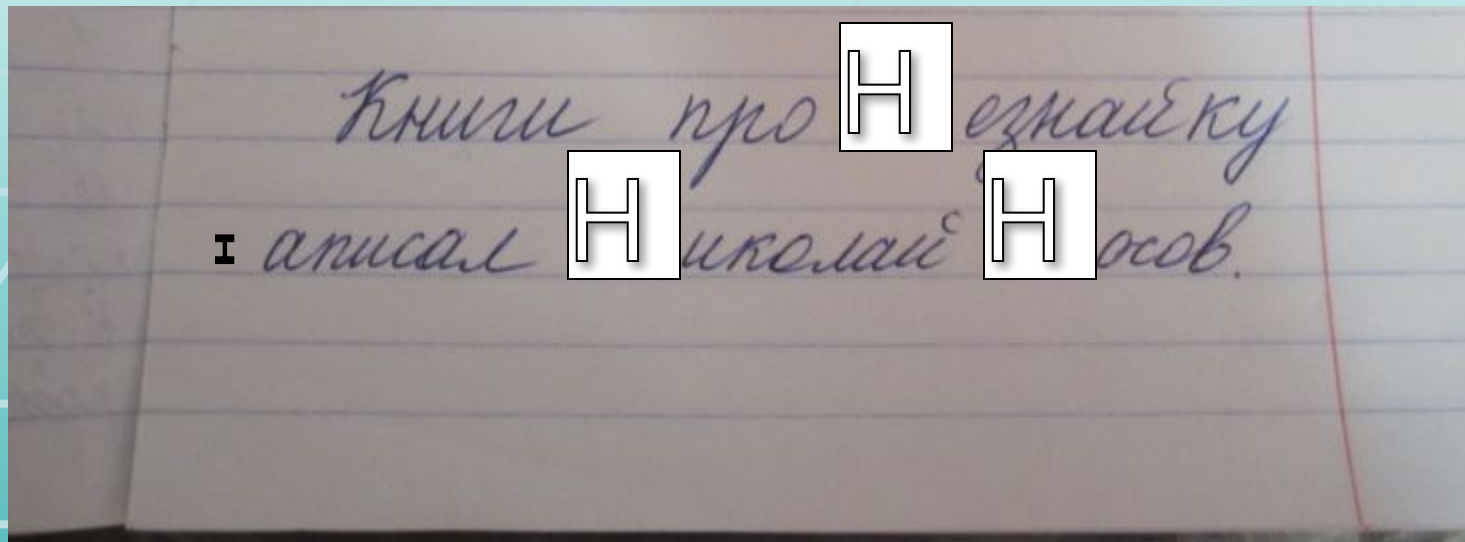 Книги про Незнайку
I аписал Николай Носов.